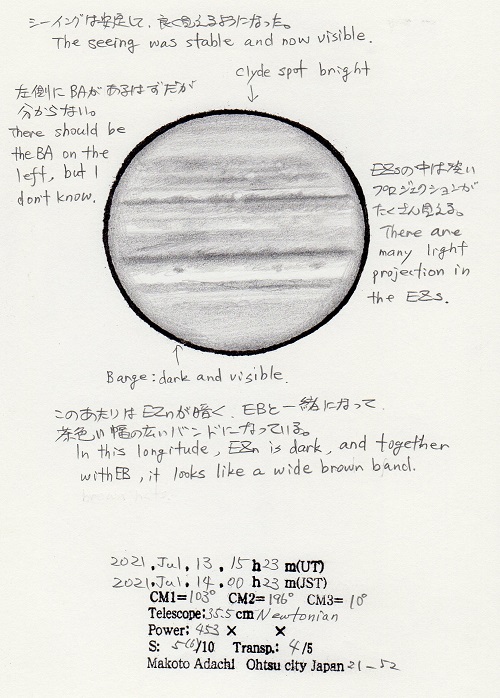 シーイングは安定して、良く見えるようになった。
The seeing was stable and now visible.
Clyde spot bright
左側にBAがあるはずだが
分からない。
There should be
the BA on the
left, but I
don't know.
EZsの中は淡い
プロジェクションが
たくさん見える。
There are
many light
projection in
the EZs.
Barge: dark and visible.
このあたりはEZnが暗く、EBと一緒になって
茶色い幅の広いバンドになっている。
In this longitude, EZn is dark, and together
with EB, it looks like a wide brown band.
2021, Jul, 13, 15 h 23 m(UT)
2021, Jul, 14, 00 h 23 m(JST)
CM1= 103° CM2= 196° CM3= 10°
Telescope: 35.5 cm Newtonian
Power: 453 × ×
S: 5(6)/10 Transp.: 4/5
Makoto Adachi Ohtsu city Japan 21-52